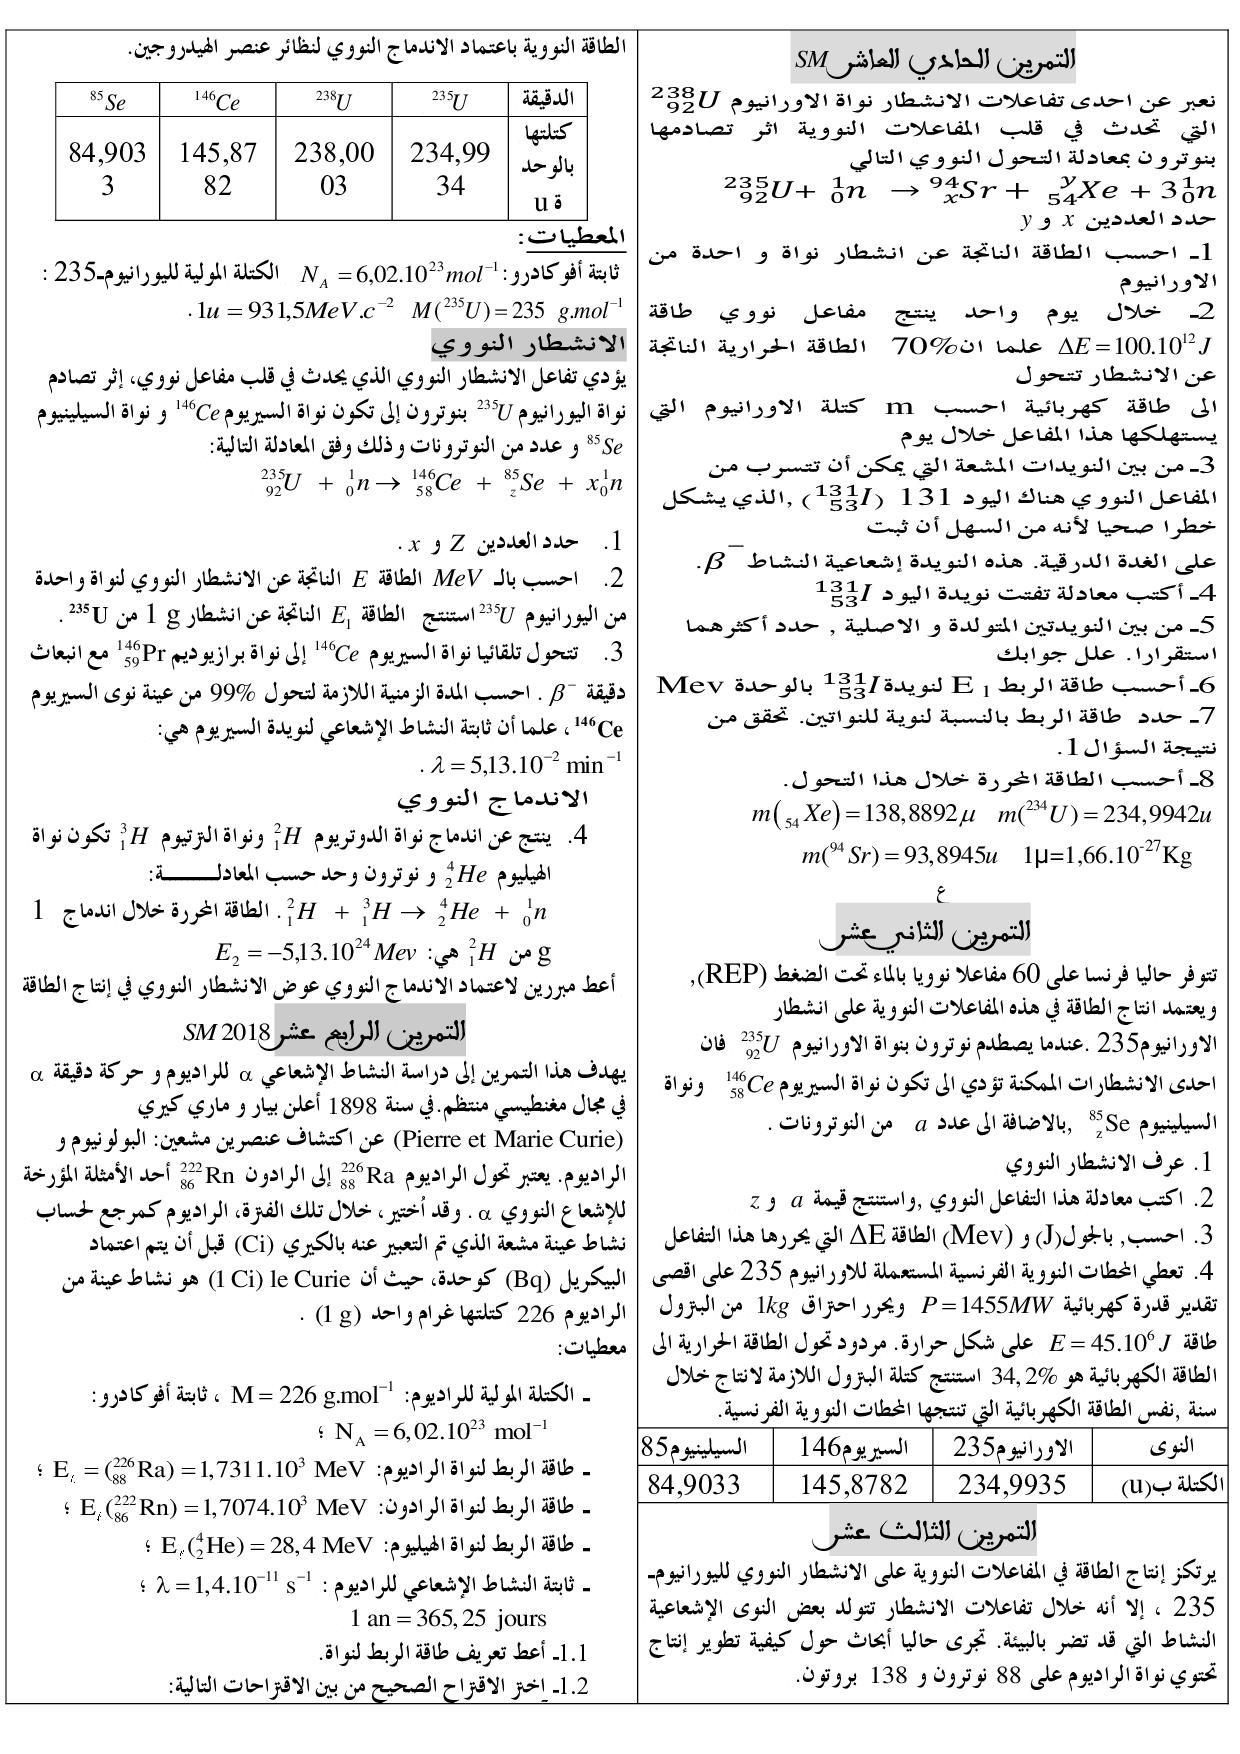 التمرين الحادي العاشر SM
نعبر عن احدى تفاعلات الانشطار نواة الاورانيوم ²³⁸₉₂U
التي تحدث في قلب المفاعلات النووية اثر تصادمها
بنوترون بمعادلة التحول النووي التالي
²³⁵₉₂U+ ¹₀n → ⁹⁴ₓSr + ʸ₅₄Xe + 3¹₀n
حدد العددين x و y
1ـ احسب الطاقة الناتجة عن انشطار نواة و احدة من
الاورانيوم
2ـ خلال يوم واحد ينتج مفاعل نووي طاقة
ΔE = 100.10¹² J علما ان70% الطاقة الحرارية الناتجة
عن الانشطار تتحول
الى طاقة كهربائية احسب m كتلة الاورانيوم التي
يستهلكها هذا المفاعل خلال يوم
3ـ من بين النويدات المشعة التي يمكن أن تتسرب من
المفاعل النووي هناك اليود 131 (¹³¹₅₃I) ,الذي يشكل
خطرا صحيا لأنه من السهل أن ثبت
على الغدة الدرقية. هذه النويدة إشعاعية النشاط β⁻.
4ـ أكتب معادلة تفتت نويدة اليود ¹³¹₅₃I
5ـ من بين النويدتين المتولدة و الاصلية , حدد أكثرهما
استقرارا. علل جوابك
6ـ أحسب طاقة الربط E ₁ لنويدة ¹³¹₅₃I بالوحدة Mev
7ـ حدد طاقة الربط بالنسبة لنوية للنواتين. تحقق من
نتيجة السؤال 1.
8ـ أحسب الطاقة المحررة خلال هذا التحول.
m(₅₄Xe) = 138,8892μ m(²³⁴U) = 234,9942u
m(⁹⁴Sr) = 93,8945u 1μ=1,66.10⁻²⁷Kg
ع
التمرين الثاني عشر
تتوفر حاليا فرنسا على 60 مفاعلا نوويا بالماء تحت الضغط (REP),
ويعتمد انتاج الطاقة في هذه المفاعلات النووية على انشطار
الاورانيوم235 .عندما يصطدم نوترون بنواة الاورانيوم ²³⁵₉₂U فان
احدى الانشطارات الممكنة تؤدي الى تكون نواة السيريوم ¹⁴⁶₅₈Ce ونواة
السيلينيوم ⁸⁵_zSe ,بالاضافة الى عدد a من النوترونات .
1. عرف الانشطار النووي
2. اكتب معادلة هذا التفاعل النووي ,واستنتج قيمة a و z
3. احسب, بالجول(J) و (Mev) الطاقة ΔE التي يحررها هذا التفاعل
4. تعطي المحطات النووية الفرنسية المستعملة للاورانيوم 235 على اقصى
تقدير قدرة كهربائية P = 1455MW ويحرر احتراق 1kg من البترول
طاقة E = 45.10⁶ J على شكل حرارة. مردود تحول الطاقة الحرارية الى
الطاقة الكهربائية هو 34,2% استنتج كتلة البترول اللازمة لانتاج خلال
سنة ,نفس الطاقة الكهربائية التي تنتجها المحطات النووية الفرنسية.
النوى الاورانيوم235 السيريوم146 السيلينيوم85
الكتلة ب(u) 234,9935 145,8782 84,9033
التمرين الثالث عشر
يرتكز إنتاج الطاقة في المفاعلات النووية على الانشطار النووي لليورانيوم-
235 ، إلا أنه خلال تفاعلات الانشطار تتولد بعض النوى الإشعاعية
النشاط التي قد تضر بالبيئة. تجرى حاليا أبحاث حول كيفية تطوير إنتاج
تحتوي نواة الراديوم على 88 نوترون و 138 بروتون.
الطاقة النووية باعتماد الاندماج النووي لنظائر عنصر الهيدروجين.
الدقيقة ²³⁵U ²³⁸U ¹⁴⁶Ce ⁸⁵Se
كتلتها
بالوحد
ة u
234,99
34
238,00
03
145,87
82
84,903
3
المعطيات:
ثابتة أفوكادرو: N_A = 6,02.10²³ mol⁻¹ الكتلة المولية لليورانيوم-235 :
M(²³⁵U) = 235 g.mol⁻¹ 1u = 931,5MeV.c⁻² .
الانشطار النووي
يؤدي تفاعل الانشطار النووي الذي يحدث في قلب مفاعل نووي، إثر تصادم
نواة اليورانيوم ²³⁵U بنوترون إلى تكون نواة السيريوم ¹⁴⁶Ce و نواة السيلينيوم
⁸⁵Se و عدد من النوترونات وذلك وفق المعادلة التالية:
²³⁵₉₂U + ¹₀n → ¹⁴⁶₅₈Ce + ⁸⁵_zSe + x¹₀n
1. حدد العددين Z و x .
2. احسب بالـ MeV الطاقة E الناتجة عن الانشطار النووي لنواة واحدة
من اليورانيوم ²³⁵U استنتج الطاقة E₁ الناتجة عن انشطار 1 g من ²³⁵U .
3. تتحول تلقائيا نواة السيريوم ¹⁴⁶Ce إلى نواة برازيوديم ¹⁴⁶₅₉Pr مع انبعاث
دقيقة β⁻ . احسب المدة الزمنية اللازمة لتحول 99% من عينة نوى السيريوم
¹⁴⁶Ce ، علما أن ثابتة النشاط الإشعاعي لنويدة السيريوم هي:
λ = 5,13.10⁻² min⁻¹ .
الاندماج النووي
4. ينتج عن اندماج نواة الدوتريوم ²₁H ونواة الترتيوم ³₁H تكون نواة
الهيليوم ⁴₂He و نوترون وحد حسب المعادلـــــــــة:
²₁H + ³₁H → ⁴₂He + ¹₀n . الطاقة المحررة خلال اندماج 1
g من ²₁H هي: E₂ = −5,13.10²⁴ Mev
أعط مبررين لاعتماد الاندماج النووي عوض الانشطار النووي في إنتاج الطاقة
التمرين الرابع عشر SM 2018
يهدف هذا التمرين إلى دراسة النشاط الإشعاعي α للراديوم و حركة دقيقة α
في مجال مغنطيسي منتظم.في سنة 1898 أعلن بيار و ماري كيري
(Pierre et Marie Curie) عن اكتشاف عنصرين مشعين: البولونيوم و
الراديوم. يعتبر تحول الراديوم ²²⁶₈₈Ra إلى الرادون ²²²₈₆Rn أحد الأمثلة المؤرخة
للإشعاع النووي α . وقد اُختير، خلال تلك الفترة، الراديوم كمرجع لحساب
نشاط عينة مشعة الذي تم التعبير عنه بالكيري (Ci) قبل أن يتم اعتماد
البيكريل (Bq) كوحدة، حيث أن le Curie (1 Ci) هو نشاط عينة من
الراديوم 226 كتلتها غرام واحد (1 g) .
معطيات:
ـ الكتلة المولية للراديوم: M = 226 g.mol⁻¹ ، ثابتة أفوكادرو:
N_A = 6,02.10²³ mol⁻¹ ؛
ـ طاقة الربط لنواة الراديوم: E_ℓ = (²²⁶₈₈Ra) = 1,7311.10³ MeV ؛
ـ طاقة الربط لنواة الرادون: E_ℓ(²²²₈₆Rn) = 1,7074.10³ MeV ؛
ـ طاقة الربط لنواة الهيليوم: E_ℓ(⁴₂He) = 28,4 MeV ؛
ـ ثابتة النشاط الإشعاعي للراديوم : λ = 1,4.10⁻¹¹ s⁻¹ ؛
1 an = 365,25 jours
1.1ـ أعط تعريف طاقة الربط لنواة.
1.2ـ اختر الاقتراح الصحيح من بين الاقتراحات التالية: